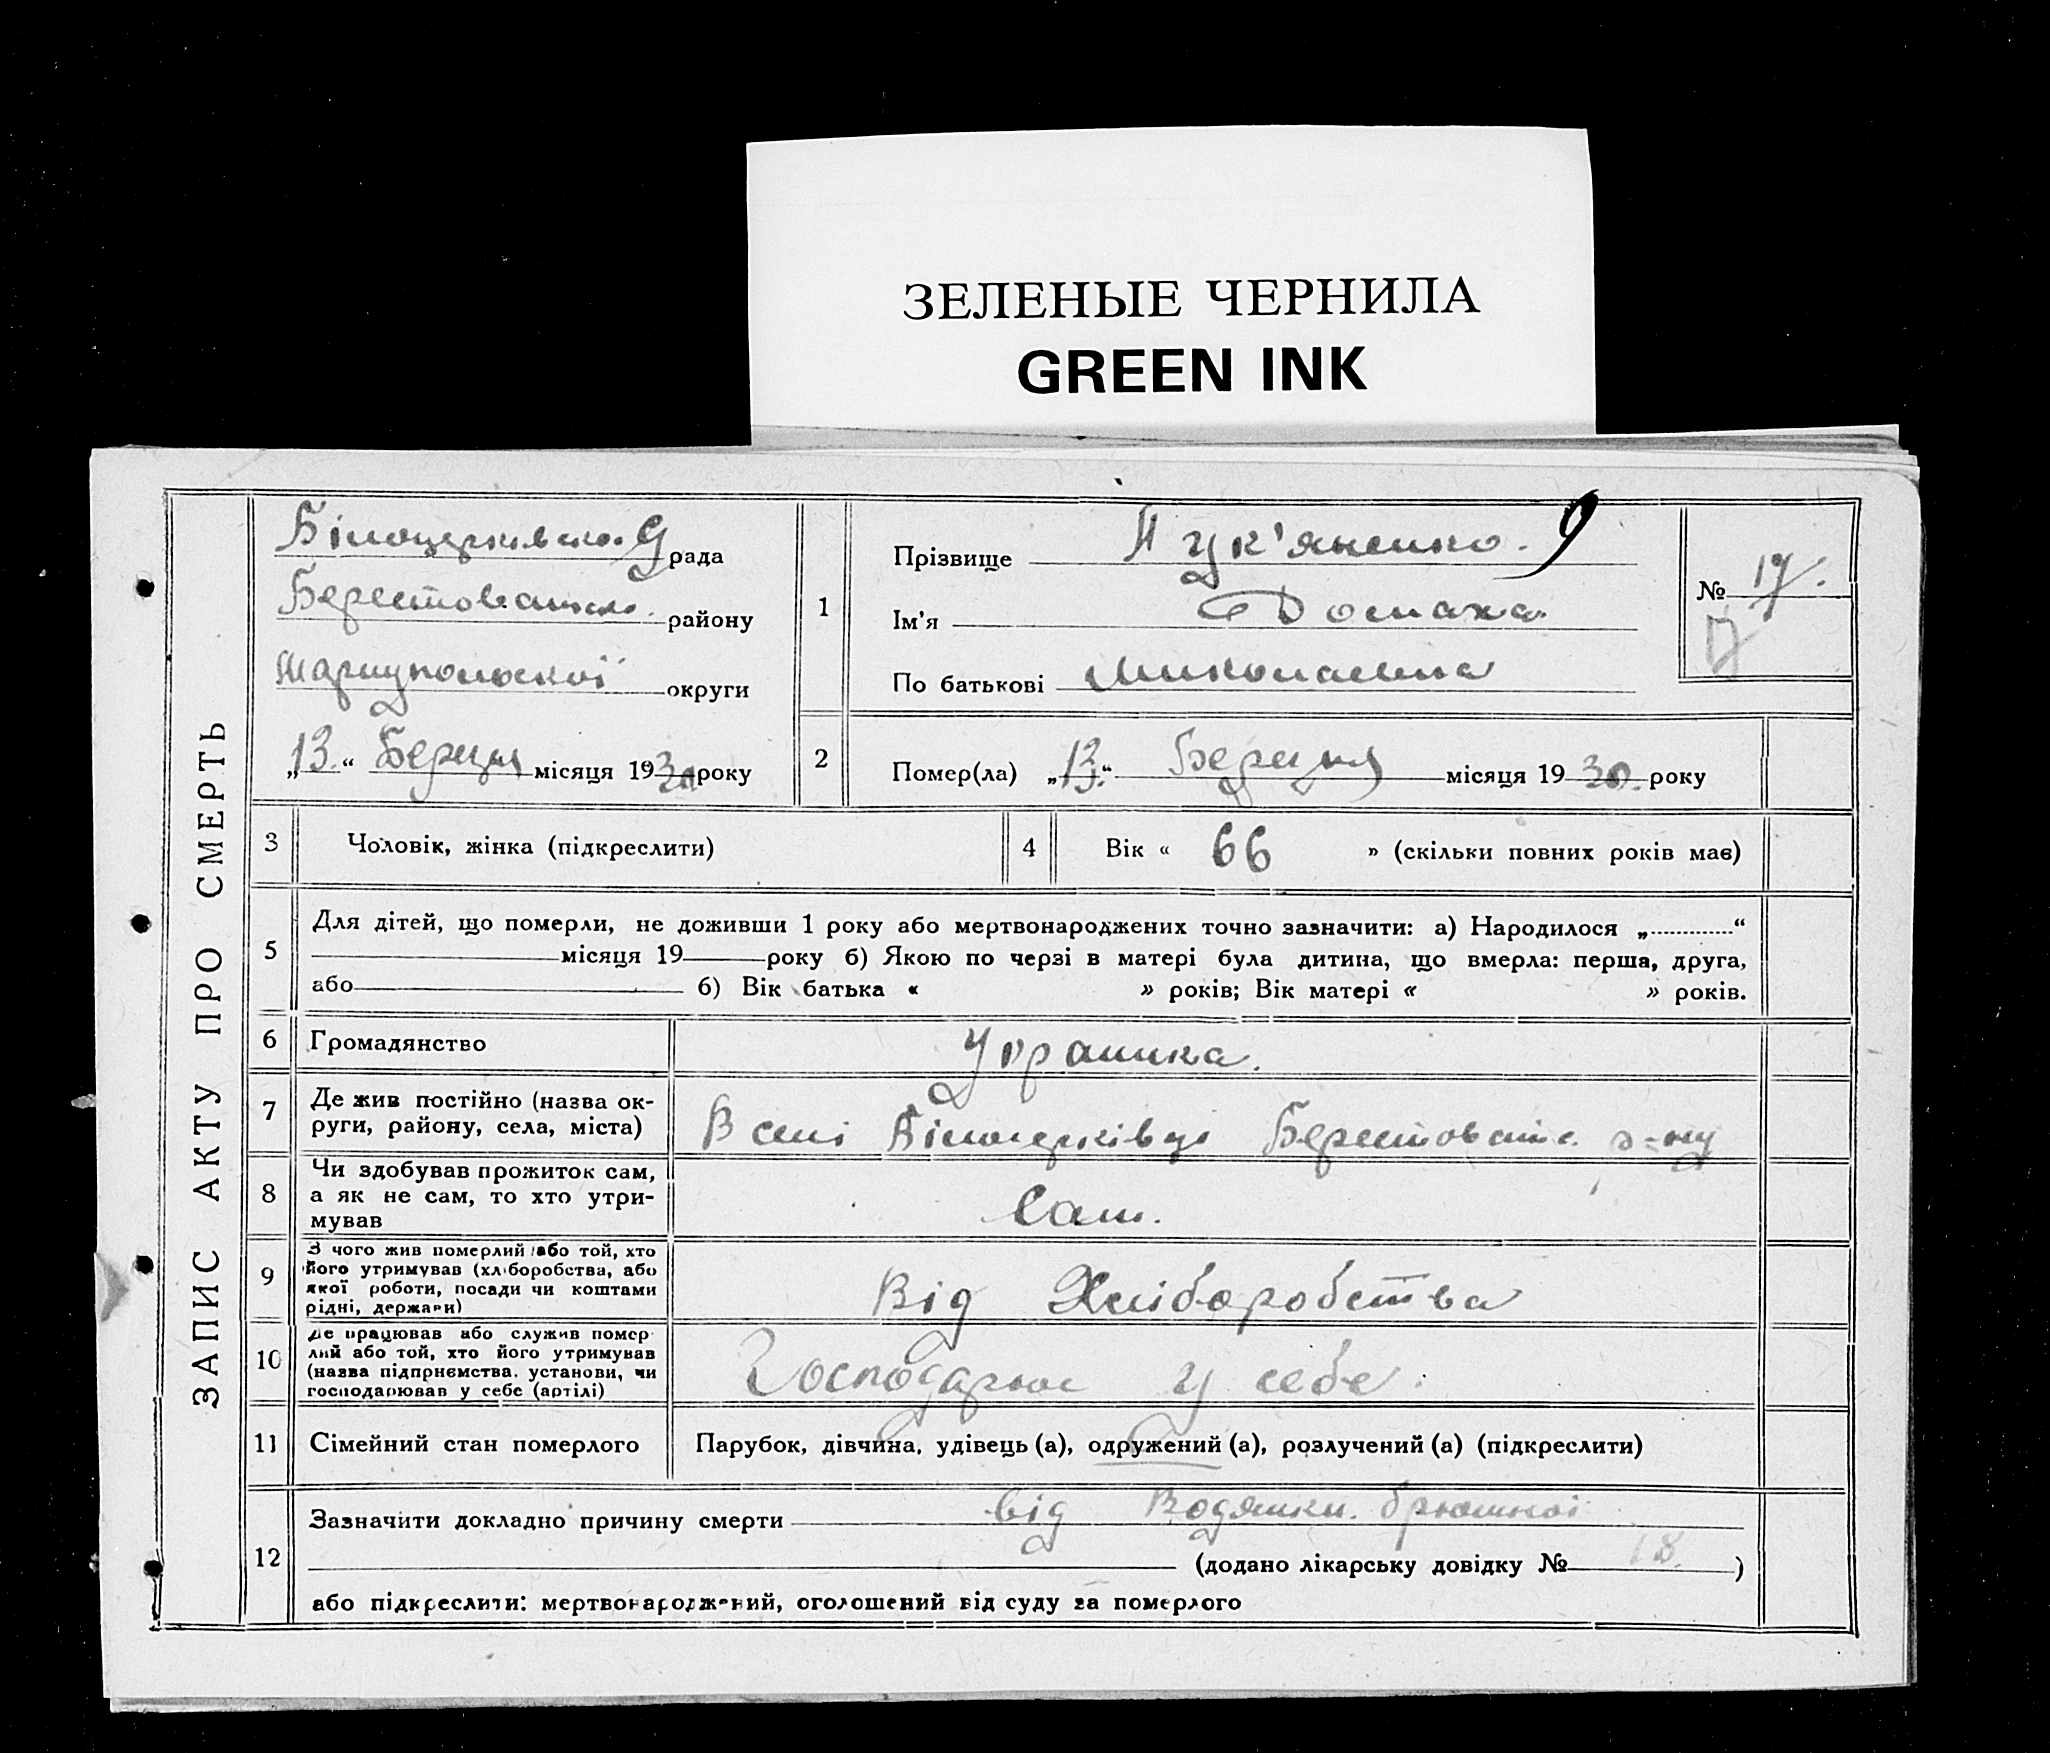 ЗЕЛЕНЫЕ ЧЕРНИЛА
GREEN INK
ЗАПИС АКТУ ПРО СМЕРТЬ
рада
району
Маріупольскої округи
„13.“ Березня місяця 1930 року
1
Прізвище Лук'яненко. 9
Ім'я Домаха
По батькові Миколаєвна
№ 17.
17
2
Помер(ла) „13.“ Березня місяця 1930. року
3 Чоловік, жінка (підкреслити)
4 Вік « 66 » (скільки повних років має)
5
Для дітей, що померли, не доживши 1 року або мертвонароджених точно зазначити: а) Народилося „.............“
місяця 19 року б) Якою по черзі в матері була дитина, що вмерла: перша, друга,
або б) Вік батька « » років; Вік матері « » років.
6 Громадянство Украинка.
7 Де жив постійно (назва ок-
руги, району, села, міста)
В селі Білоцерківці Берестоватс. р-ну
8
Чи здобував прожиток сам,
а як не сам, то хто утри-
мував
Сам.
9
З чого жив померлий або той, хто
його утримував (хліборобства, або
якої роботи, посади чи коштами
рідні, держави)
Від Хліборобства
10
Де працював або служив помер
лий або той, хто його утримував
(назва підприємства, установи, чи
господарював у себе (артілі)
Господарює у себе.
11 Сімейний стан померлого Парубок, дівчина, удівець (а), одружений (а), розлучений (а) (підкреслити)
12
Зазначити докладно причину смерти від Водянки. брюшної
(додано лікарську довідку № 18. )
або підкреслити: мертвонароджений, оголошений від суду за померлого